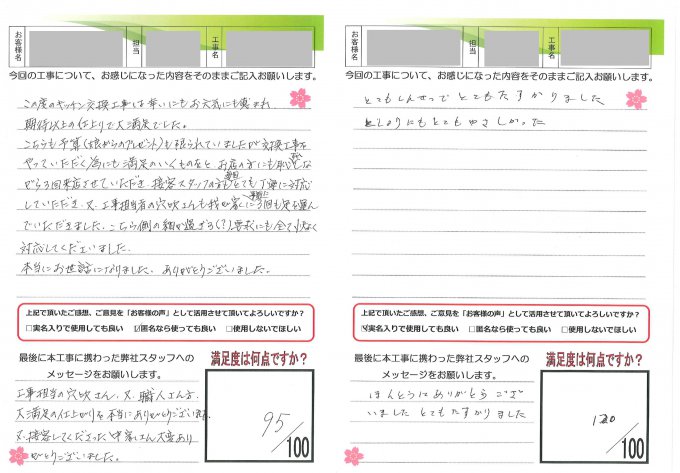 お客様名
担当
工事名
今回の工事について、お感じになった内容をそのままご記入お願いします。
この度のキッチン交換工事は幸いにもお天気にも恵まれ
期待以上の仕上りで大満足でした。
こちらも予算(娘からのプレゼント)も限られていましたが交換工事を
やっていただく為にも満足のいくものをと お店の方にも
ながら3回来店させていただき 接客スタッフの方もとても丁寧に対応
毎回
していただき、又、工事担当者の穴吹さんも我が家に3回も足を運ん
事前に
でいただきました。こちら側の細か過ぎる(?)要求にも全て
対応してくださいました。
本当にお世話になりました。ありがとうございました。
上記で頂いたご感想、ご意見を「お客様の声」として活用させて頂いてよろしいですか?
□実名入りで使用しても良い ☑匿名なら使っても良い □使用しないでほしい
最後に本工事に携わった弊社スタッフへの
メッセージをお願いします。
工事担当の穴吹さん、又、職人さん方、
大満足の仕上がりを本当にありがとうございます。
又、接客してくださった中家さん大変あり
がとうございました。
満足度は何点ですか?
95
/100
お客様名
担当
工事名
今回の工事について、お感じになった内容をそのままご記入お願いします。
とてもしんせつで とてもたすかりました
としよりにもとてもやさしかった
上記で頂いたご感想、ご意見を「お客様の声」として活用させて頂いてよろしいですか?
☑実名入りで使用しても良い □匿名なら使っても良い □使用しないでほしい
最後に本工事に携わった弊社スタッフへの
メッセージをお願いします。
ほんとうにありがとうござ
いました とてもたすかりました
満足度は何点ですか?
120
/100